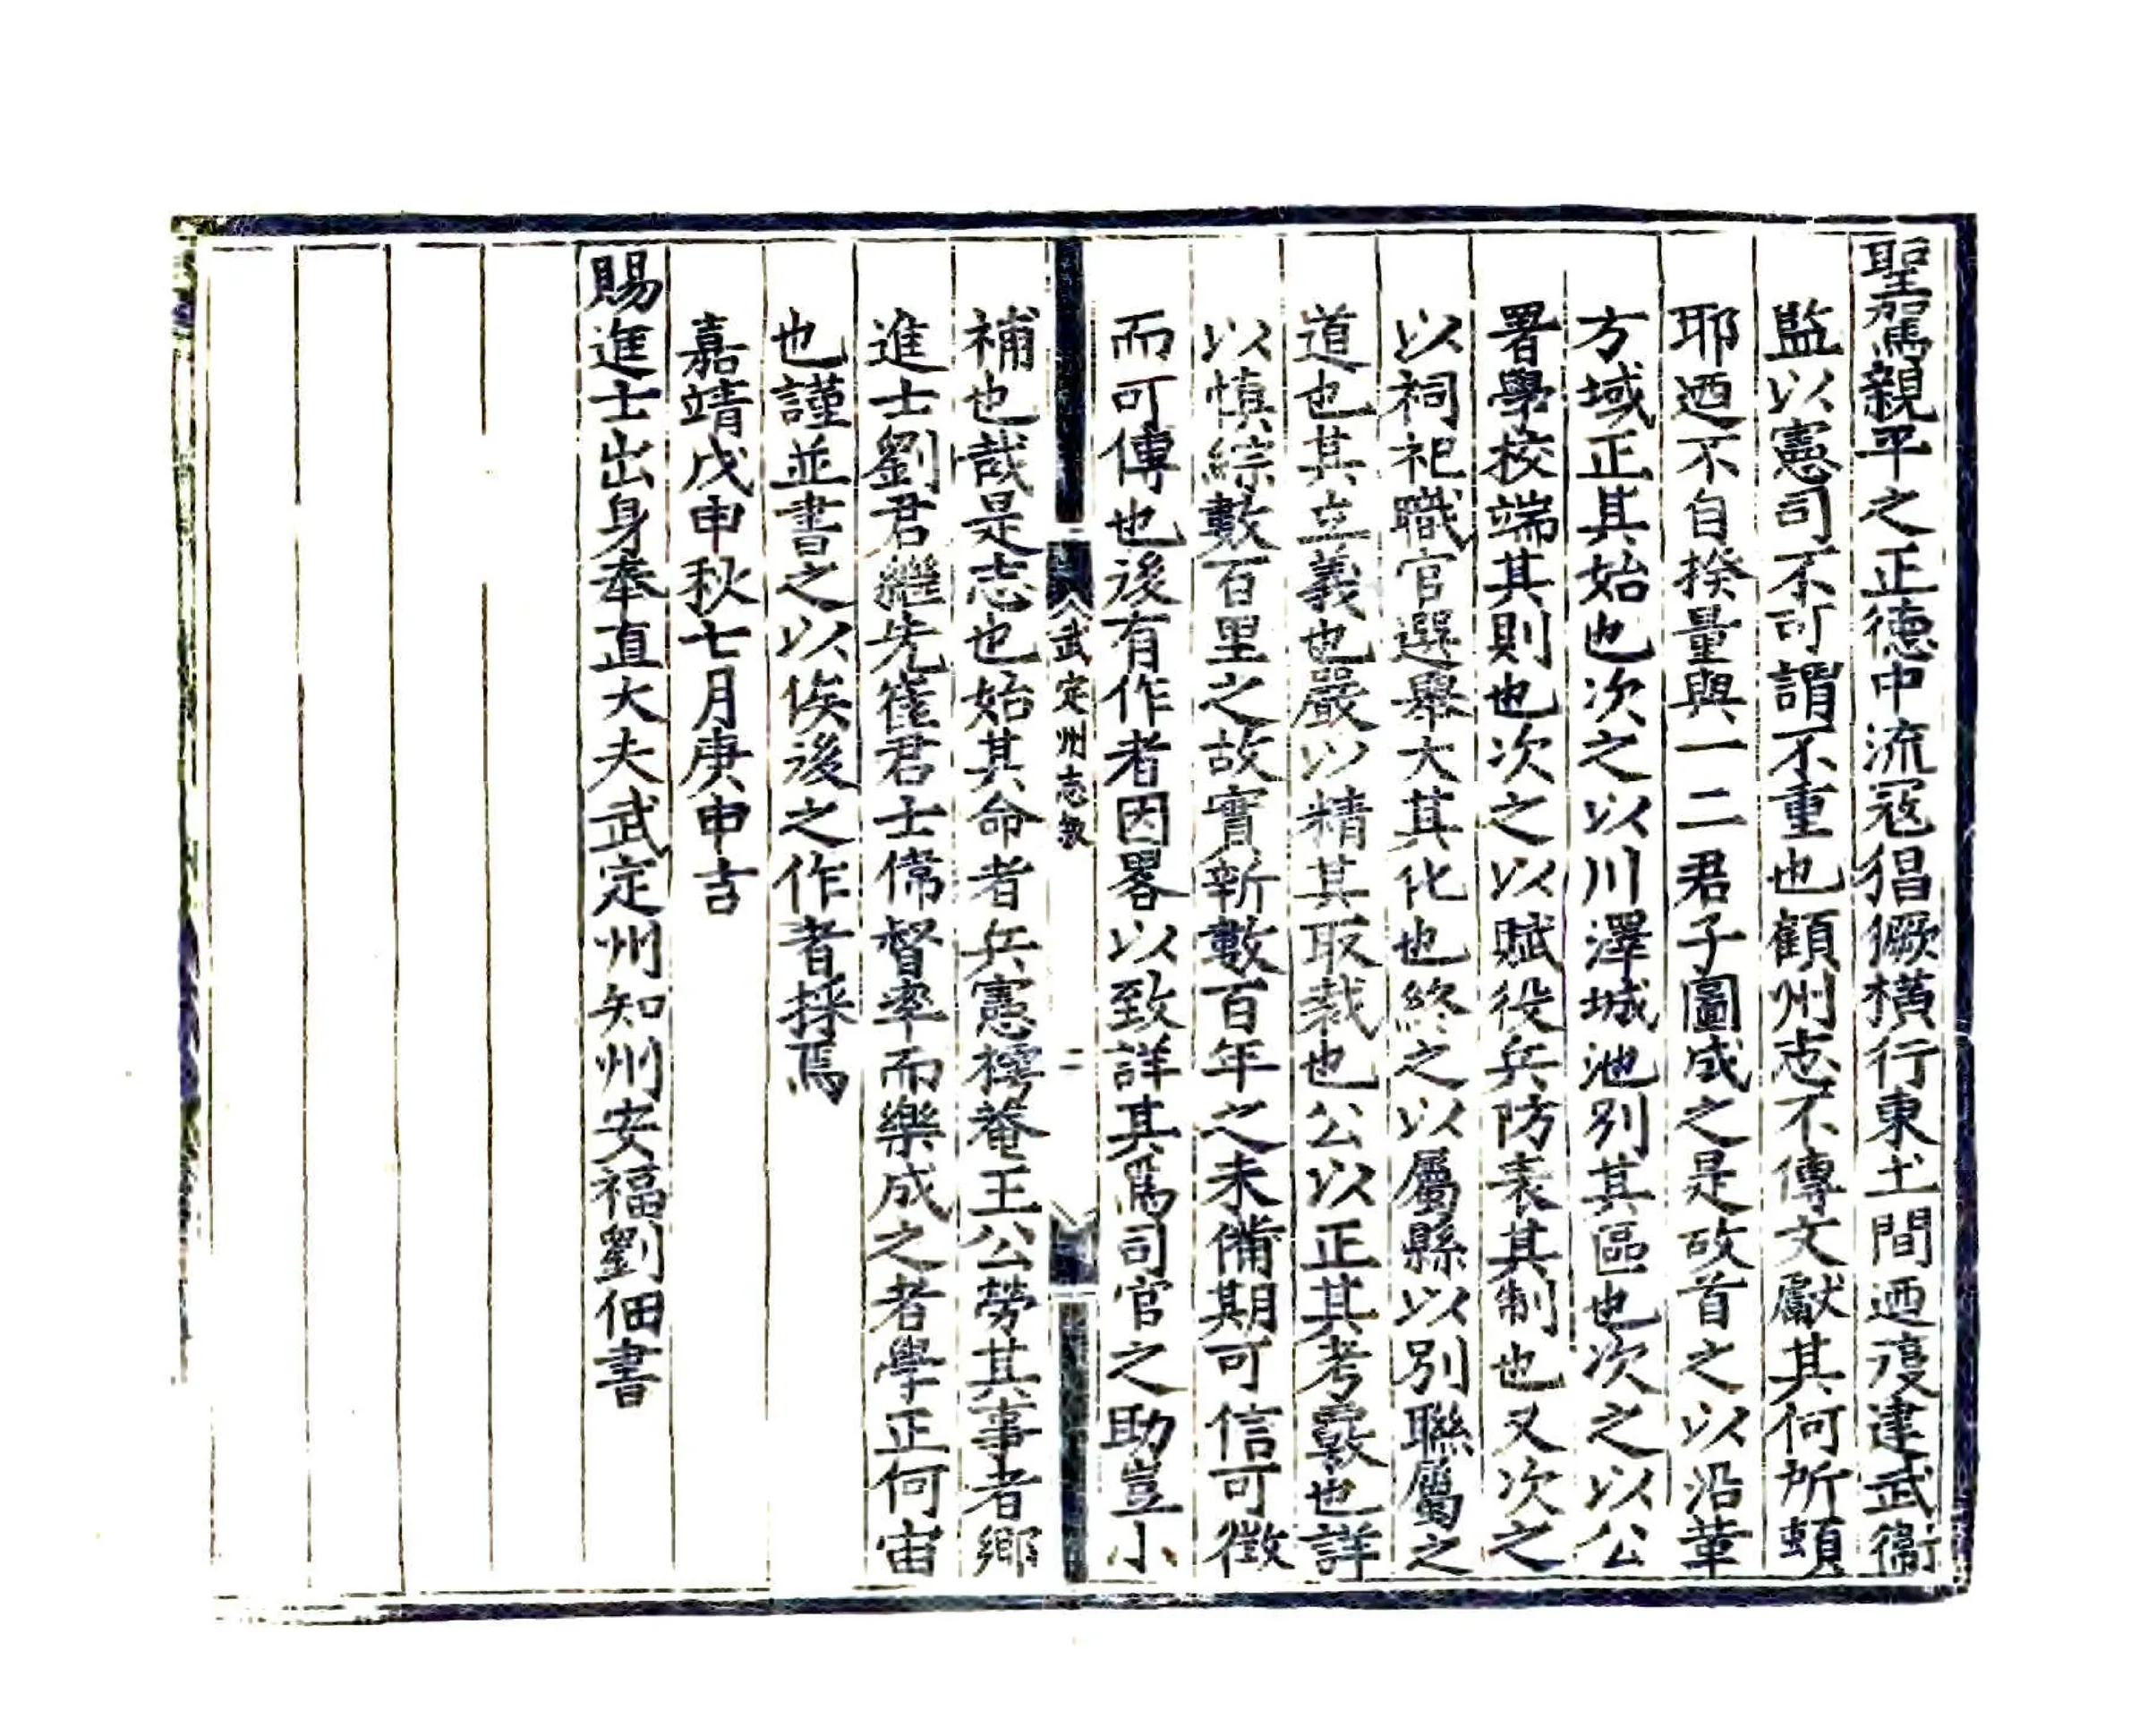 聖駕親平之正德中流冦猖獗橫行東土間迺復建武衞
監以憲司不可謂不重也顧州志不傳文獻其何所頼
耶迺不自揆量與一二君子圖成之是故首之以沿革
方域正其始也次之以川澤城池別其區也次之以公
署學校端其則也次之以賦役兵防表其制也又次之
以祠祀職官選舉大其化也終之以屬縣以別聯屬之
道也其立義也嚴以精其取裁也公以正其考覈也詳
以慎綜數百里之故實新數百年之未備期可信可徵
而可傳也後有作者因畧以致詳其爲司官之助豈小
武定州志敘
二
補也哉是志也始其命者兵憲樗菴王公勞其事者鄉
進士劉君繼先崔君士偁督率而樂成之者學正何宙
也謹並書之以俟後之作者採焉
嘉靖戊申秋七月庚申吉
賜進士出身奉直大夫武定州知州安福劉佃書